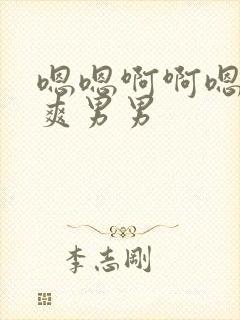 嗯嗯啊啊嗯
爽男男
李志刚